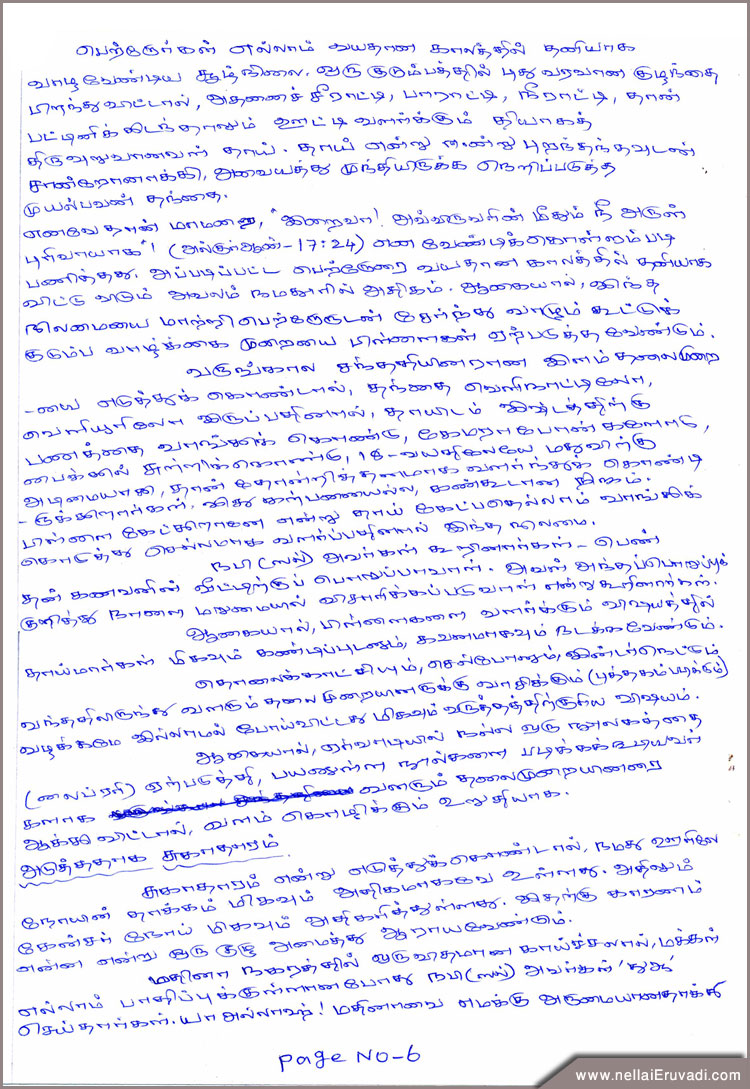 பெற்றோர்கள் எல்லாம் வயதான காலத்தில் தனியாக
வாழவேண்டிய சூழ்நிலை. ஒரு குடும்பத்தில் புது வரவான குழந்தை
பிறந்து விட்டால், அதனைச் சீராட்டி, பாராட்டி, நீராட்டி, தான்
பட்டினி கிடந்தாலும் ஊட்டி வளர்க்கும் தியாகத்
திருவுருவானவள் தாய். தாய் என்று ஈண்று புறந்தந்தவுடன்
சான்றோனாக்கி, அவையத்து முந்தியிருக்க நெறிப்படுத்த
முயல்பவன் தந்தை.
எனவே தான் மாமறை, "இறைவா! அவ்விருவரின் மீதும் நீ அருள்
புரிவாயாக"! (அல்குர்ஆன்-17:24) என வேண்டிக்கொள்ளும்படி
பணித்தது. அப்படிப்பட்ட பெற்றோரை வயதான காலத்தில் தனியாக
விட்டு விடும் அவலம் நமதூரில் அதிகம். ஆகையால், இந்த
நிலமையை மாற்றி பெற்றோருடன் சேர்ந்து வாழும் கூட்டுக்
குடும்ப வாழ்க்கை முறையை பிள்ளைகள் ஏற்படுத்த வேண்டும்.
வருங்கால சந்ததியினரான இளம் தலைமுறை
-யை எடுத்துக் கொண்டால், தந்தை வெளிநாட்டிலோ,
வெளியூரிலோ இருப்பதினால், தாயிடம் இஷ்டத்திற்கு
பணத்தை வாங்கிக் கொண்டு, கேமரா போன்களோடு,
பைக்கில் சுற்றிக்கொண்டு, 18-வயதிலேயே மதுவிற்கு
அடிமையாகி, தான் தோன்றித்தனமாக வளர்ந்துக் கொண்டி
-ருக்கிறார்கள். இது கற்பனையல்ல, கண்கூடான நிஜம்.
பிள்ளை கேட்கிறானே என்று தாய் கேட்பதெல்லாம் வாங்கிக்
கொடுத்து செல்லமாக வளர்ப்பதினால் இந்த நிலமை.
நபி(ஸல்) அவர்கள் கூறினார்கள் - பெண்
தன் கணவனின் வீட்டிற்குப் பொறுப்பாவாள். அவள் அந்தப்பொறுப்புக்
குறித்து நாளை மறுமையில் விசாரிக்கப்படுவாள் என்று கூறினார்கள்.
ஆகையால், பிள்ளைகளை வளர்க்கும் விஷயத்தில்
தாய்மார்கள் மிகவும் கண்டிப்புடனும், கவனமாகவும் நடக்கவேண்டும்.
தொலைக்காட்சியும், செல்போனும், இன்டர்நெட்டும்
வந்ததிலிருந்து வளரும் தலைமுறையினருக்கு வாசிக்கும் (புத்தகம் படிக்கும்)
வழக்கமே இல்லாமல் போய்விட்டது மிகவும் வருத்தத்திற்குரிய விஷயம்.
ஆகையால், ஏர்வாடியில் நல்ல ஒரு நூலகத்தை
(லைப்ரரி) ஏற்படுத்தி, பயனுள்ள நூல்களை படிக்கக்கூடியவர்
களாக வளரும் தலைமுறையினரை
ஆக்கி விட்டால், வளம் கொழிக்கும் உறுதியாக.
அடுத்ததாக சுகாதாரம்.
சுகாதாரம் என்று எடுத்துக்கொண்டால், நமது ஊரிலே
நோயின் தாக்கம் மிகவும் அதிகமாகவே உள்ளது. அதிலும்
கேன்சர் நோய் மிகவும் அதிகரித்துள்ளது. இதற்கு காரணம்
என்ன என்று ஒரு குழு அமைத்து ஆராயவேண்டும்.
மதினா நகரத்தில் ஒருவிதமான காய்ச்சலால், மக்கள்
எல்லாம் பாதிப்புக்குள்ளானபோது நபி(ஸல்) அவர்கள் 'துஆ'
செய்தார்கள். யா அல்லாஹ்! மதினாவை எமக்கு அருமையானதாக்கி
Page No-6
www.nellaiEruvadi.com